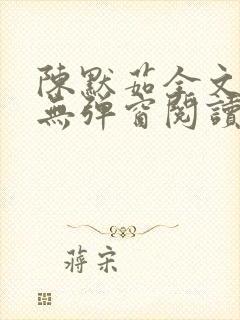 陳默茹全文
無彈窗閱讀
蔣宋